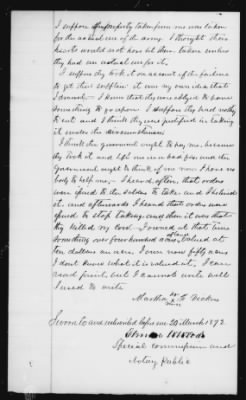 I suppose property taken from me was taken
for the actual use of the army. I thought their
hearts would not have let them taken unless
they had an actual use for it.
I suppose they took it on account of the failure
to get their supplies it was my own idea that
I do not know that they was obliged to have
something to go upon. I suppose they had nothing
to eat and I think they was justified in taking
it under the circumstances.
I think the government ought to pay me, because
they took it and left me in a bad fix and the
Government ought to think of me now I have no
body to help me. I heard, often, that orders
were issued to the soldiers to take and I believed
it, and afterwards I heard that orders was
issued to stop taking, and then it was that
they killed my cow. I owned at that time
something over four hundred acres of land, valued at
ten dollars an acre. I own now fifty acres
I don't know what it is valued at. I can
read print but I cannot write well
I used to write
Martha
Sworn to and subscribed before me 20 March 1873.
Special Commissioner and
Notary Public